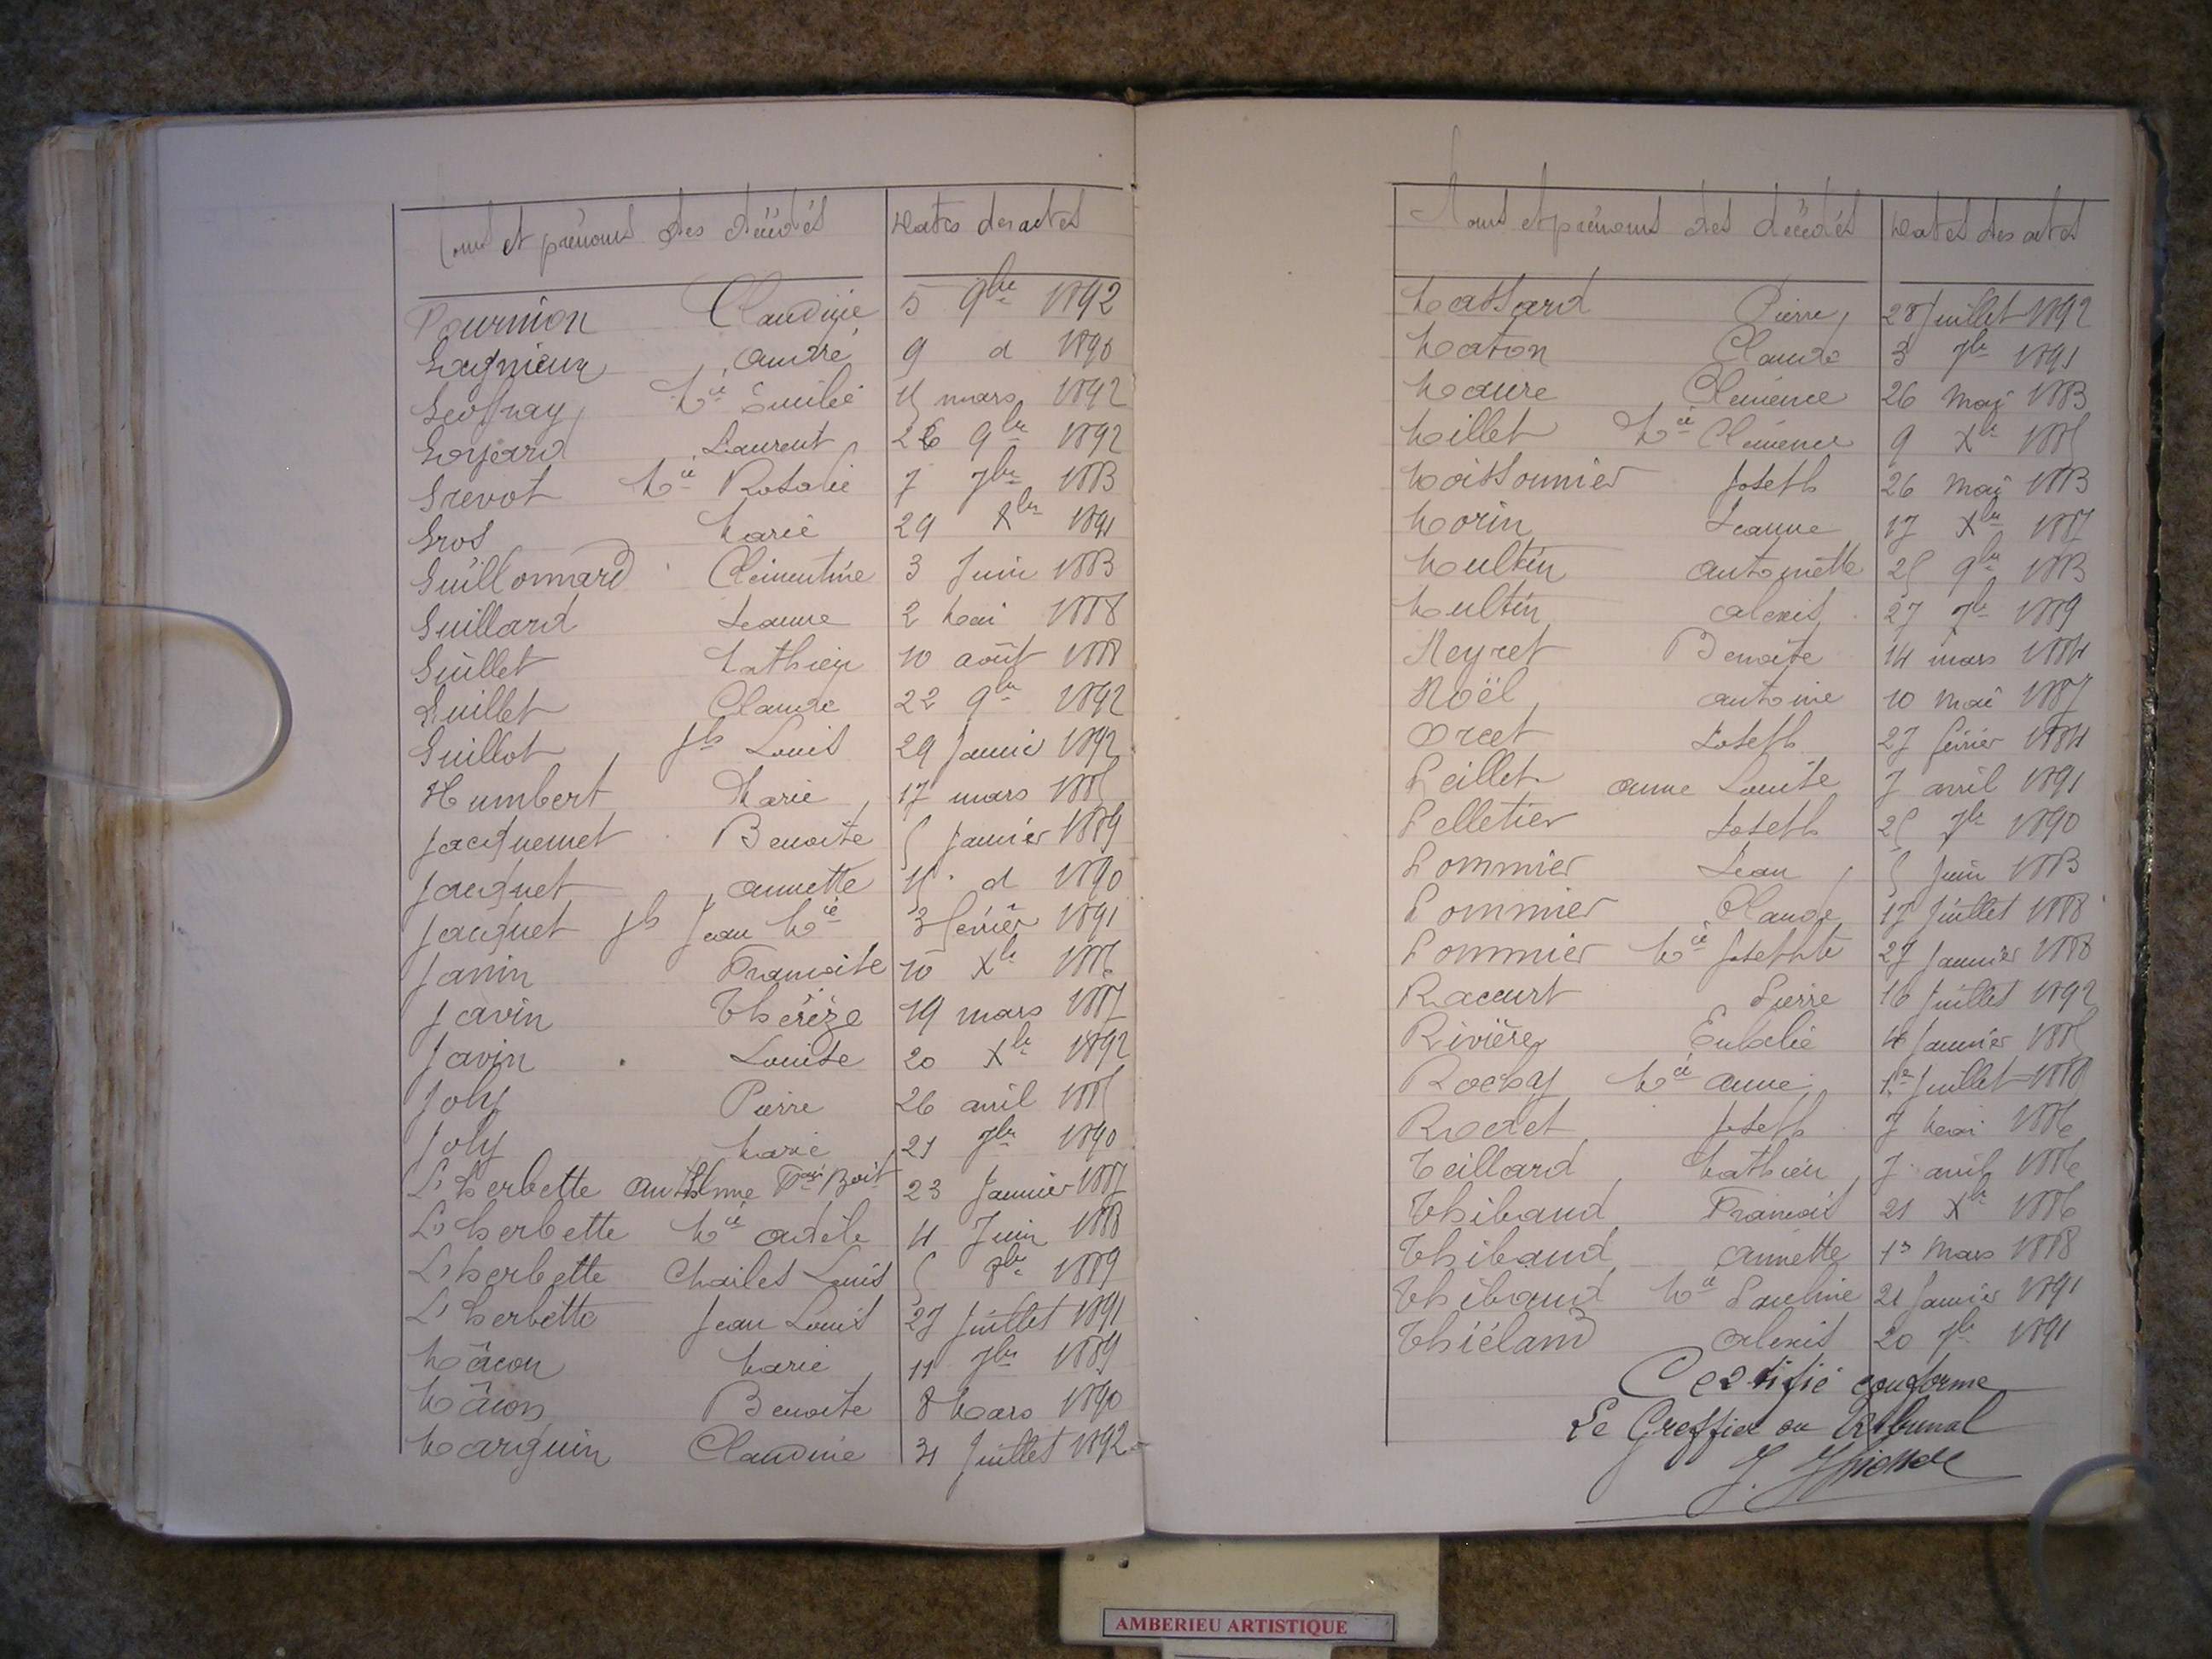 Noms et prénoms des décédés Dates des actes
Fournion Claudine 5 9bre 1892
Gagnieux André 9 d 1890
Geoffray Mie Emilie 15 mars 1892
Goyard Laurent 26 9bre 1892
Grevot Mie Rosalie 7 7bre 1883
Gros Marie 29 Xbre 1891
Guillonnard Clémentine 3 Juin 1883
Guillard Jeanne 2 Mai 1888
Guillet Mathieu 10 août 1888
Guillet Claude 22 9bre 1892
Guillot Jh Louis 29 Janvier 1892
Humbert Marie 17 mars 1885
Jacquemet Benoite 5 Janvier 1889
Jacquet annette 15 d 1890
Jacquet Jh Jean Mie 3 février 1891
Janin Françoise 10 Xbre
Javin Thérèze 19 mars 1887
Javin Louise 20 Xbre 1892
Joly Pierre 26 avril 1885
Joly Marie 21 7bre 1890
L'herbette Anthelme Benit 23 Janvier 1887
L'herbette Mie adèle 4 Juin 1888
L'herbette Charles Louis 5 8bre 1889
L'herbette Jean Louis 27 Juillet 1891
Mâcon Marie 11 7bre 1889
Mâcon Benoite 8 Mars 1890
Marguin Claudine 31 Juillet 1892
Noms et prénoms des décédés Dates des actes
Massard Pierre 28 Juillet 1892
Maton Claude 3 7bre 1891
Maure Clémence 26 Mai 1883
Millet Mie Clémence 9 Xbre 1885
Moissonnier Joseph 26 Mai 1883
Morin Jeanne 17 Xbre 1887
Multin Antoinette 25 9bre 1883
Multin Alexis 27 7bre 1889
Neyret Benoite 14 mars 1884
Noël antoine 10 mai 1887
Orcet Joseph 27 février 1884
Peillet anne Louise 7 avril 1891
Pelletier Joseph 25 7bre 1890
Pommier Jean 5 Juin 1883
Pommier Claude 17 Juillet 1888
Pommier Mie Josephte 27 Janvier 1888
Raccurt Pierre 16 Juillet 1892
Rivière Eulalie 4 Janvier 1885
Rochy Mie anne 1er Juillet 1888
Rodet Joseph 7 Mai 1886
Teillard Mathieu 7 avril 1886
Thibaud François 21 Xbre 1886
Thibaud Annette 13 Mars 1888
Thibaud Mie Pauline 21 Janvier 1891
Thiéland Alexis 20 7bre 1891
Certifié conforme
Le Greffier du Tribunal
AMBERIEU ARTISTIQUE